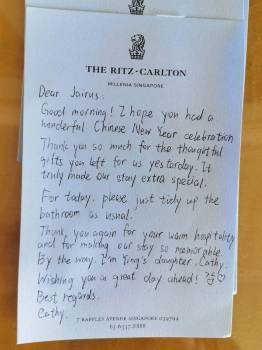 THE RITZ-CARLTON
MILLENIA SINGAPORE
Dear Jairus:
Good morning! I hope you had a
wonderful Chinese New Year celebration
Thank you so much for the thoughtful
gifts you left for us yesterday. It
truly made our stay extra special.
For today, please just tidy up the
bathroom as usual.
Thank you again for your warm hospitality
and for making our stay so memorable.
By the way, I'm Ying's daughter, Cathy.
Wishing you a great day ahead!
Best regards.
Cathy.
7 RAFFLES AVENUE SINGAPORE 039799
65 6337 8888